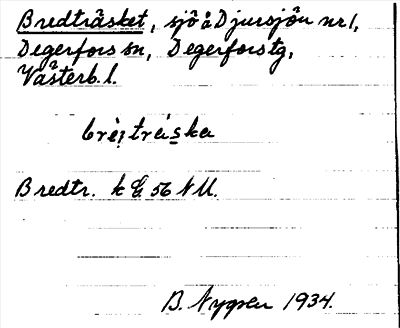 Bredträsket, sjö å Djursjön nr 1,
Degerfors sn, Degerfors tg,
Västerb. l.
Bredtr. k
56 NU.
B. Nygren 1934.